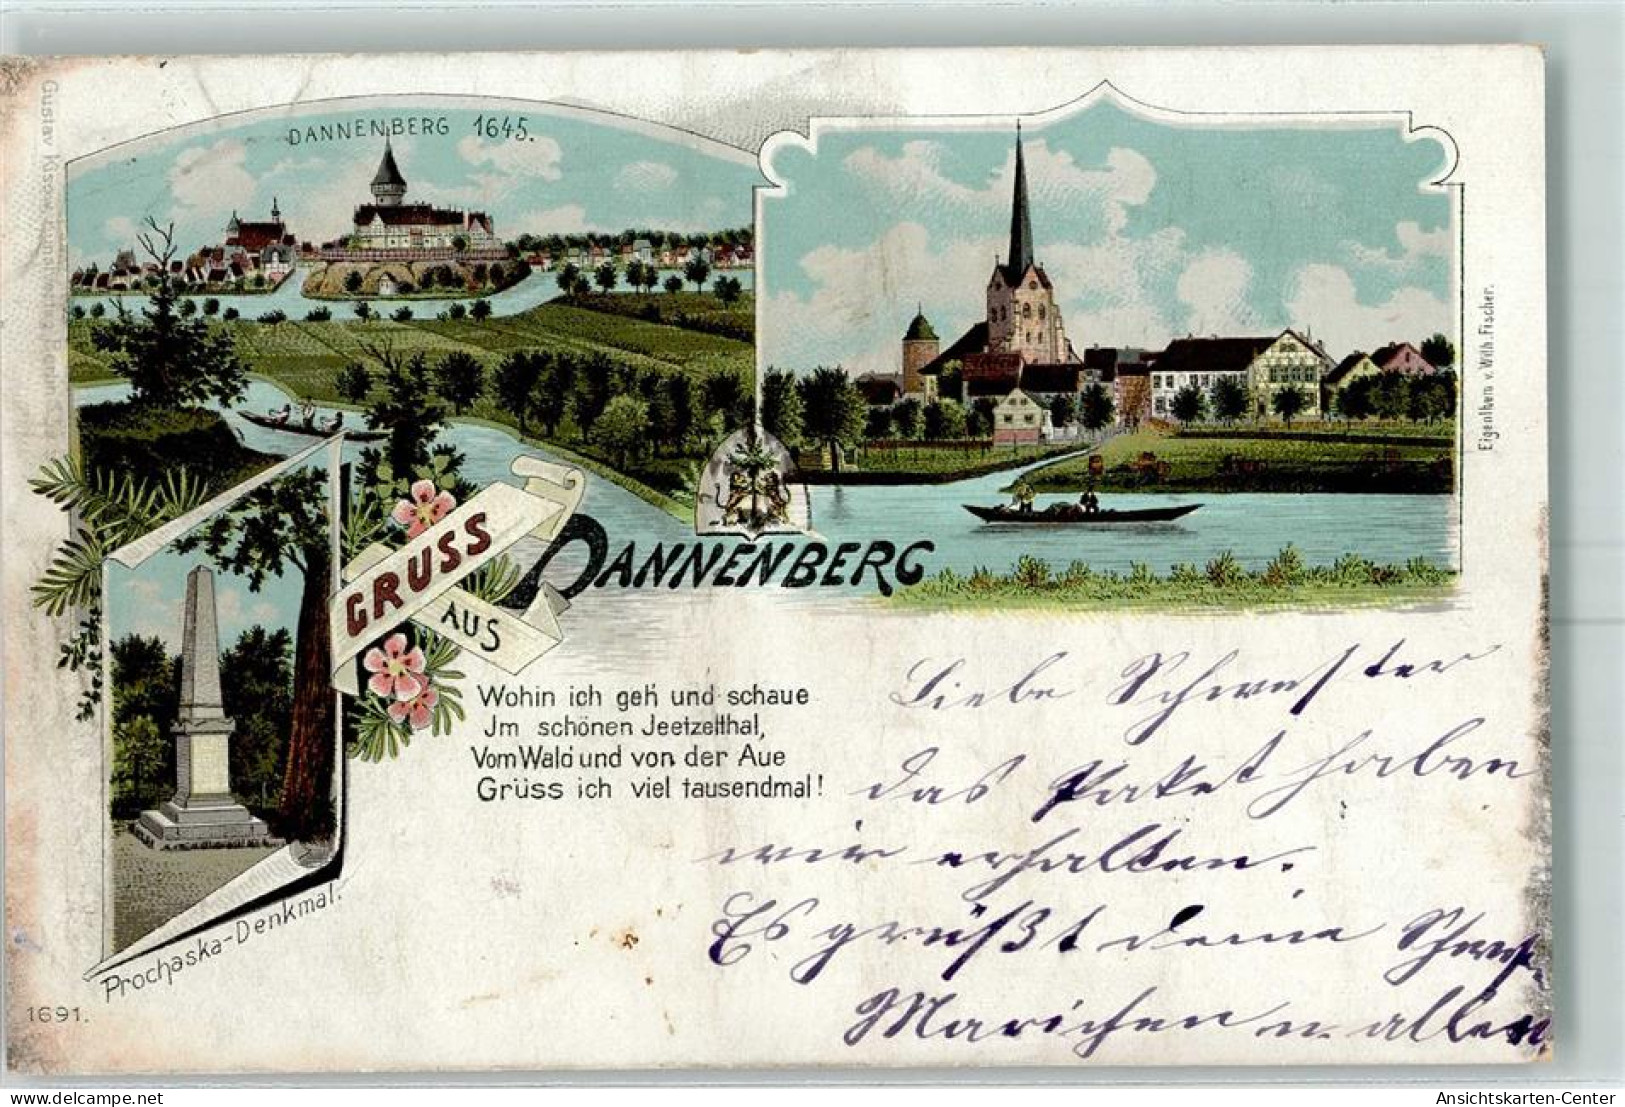 DANNENBERG 1645.
GRUSS
AUS
DANNENBERG
Wohin ich geh' und schaue
Jm schönen Jeetzelthal,
Vom Wald und von der Aue
Grüss ich viel tausendmal!
Prochaska-Denkmal.
1691.
Eigenthum v. Wilh. Fischer.
Gustav
Liebe Schwester
das Paket haben
wir erhalten.
Es grüßt deine
Marichen u. allen
AnsichtsKarten-Center